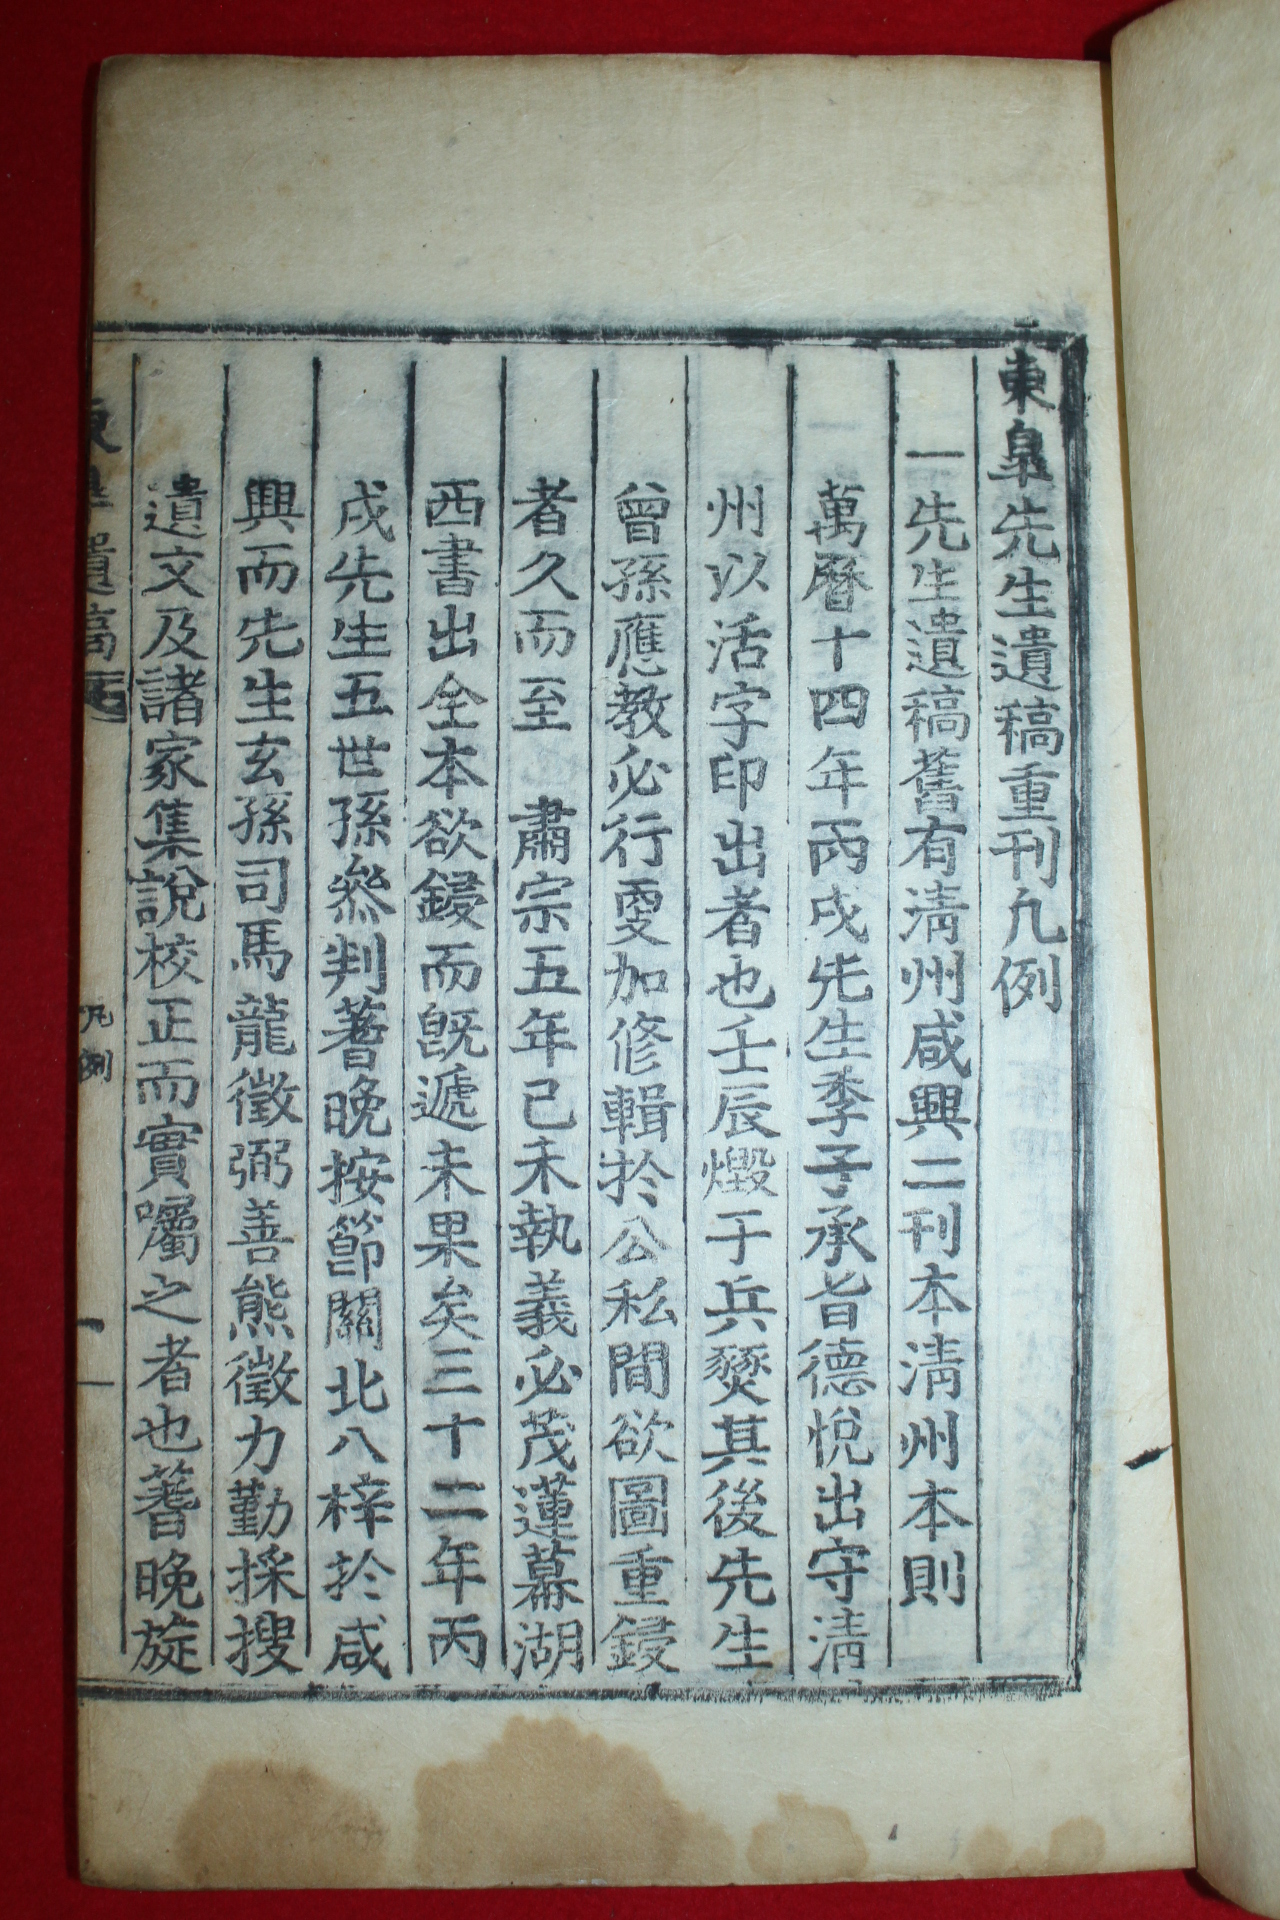 東皐先生遺稿重刊凡例
一先生遺稿舊有淸州咸興二刊本淸州本則
萬曆十四年丙戌先生季子承旨德悅出守淸
州以活字印出者也壬辰燬于兵燹其後先生
曾孫應敎必行更加修輯於公私間欲圖重鋟
者久而至 肅宗五年己未執義必茂蓮幕湖
西書出全本欲鋟而旣遞未果矣三十二年丙
戌先生五世孫叅判蓍晚按節關北八梓於咸
興而先生玄孫司馬龍徵弼善熊徵力勤採搜
遺文及諸家集說校正而實囑之者也蓍晚旋
東皐遺稿
凡例
一